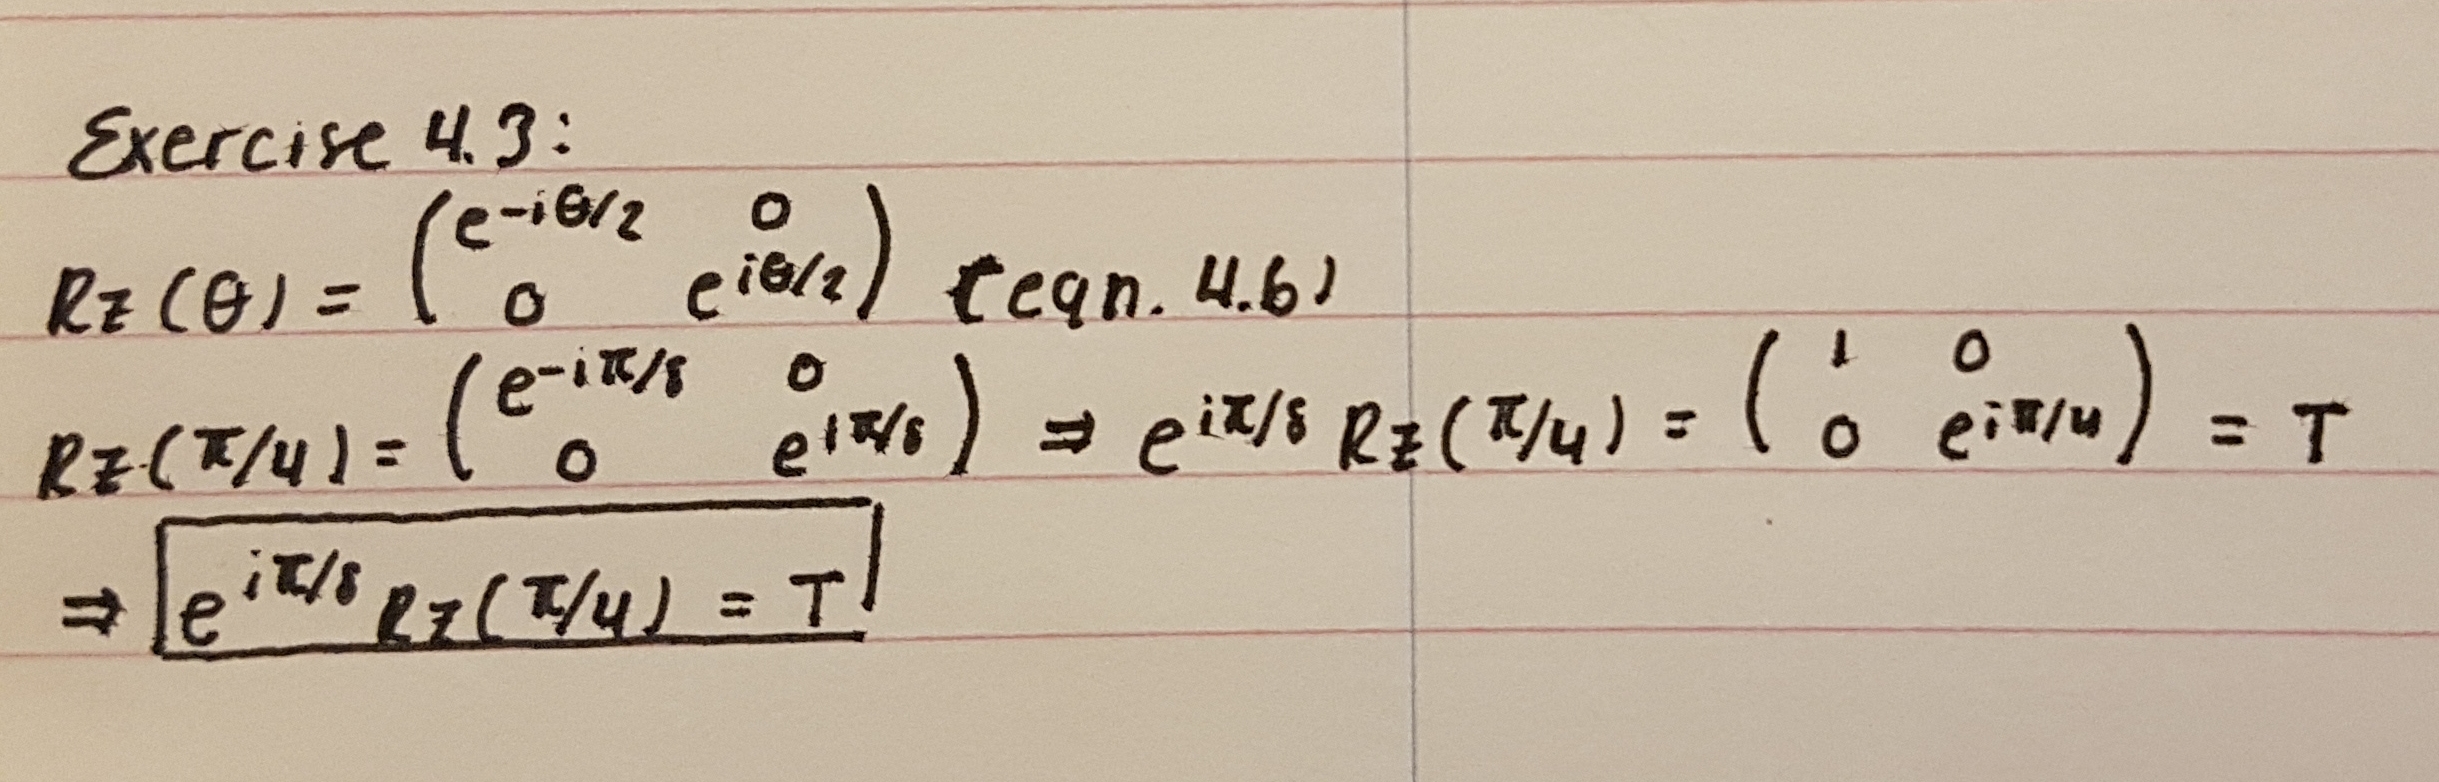 Exercise 4.3:
Rz(θ) = (e^{-iθ/2} 0 / 0 e^{iθ/2}) (eqn. 4.6)
Rz(π/4) = (e^{-iπ/8} 0 / 0 e^{iπ/8}) ⇒ e^{iπ/8} Rz(π/4) = (1 0 / 0 e^{iπ/4}) = T
⇒ e^{iπ/8} Rz(π/4) = T